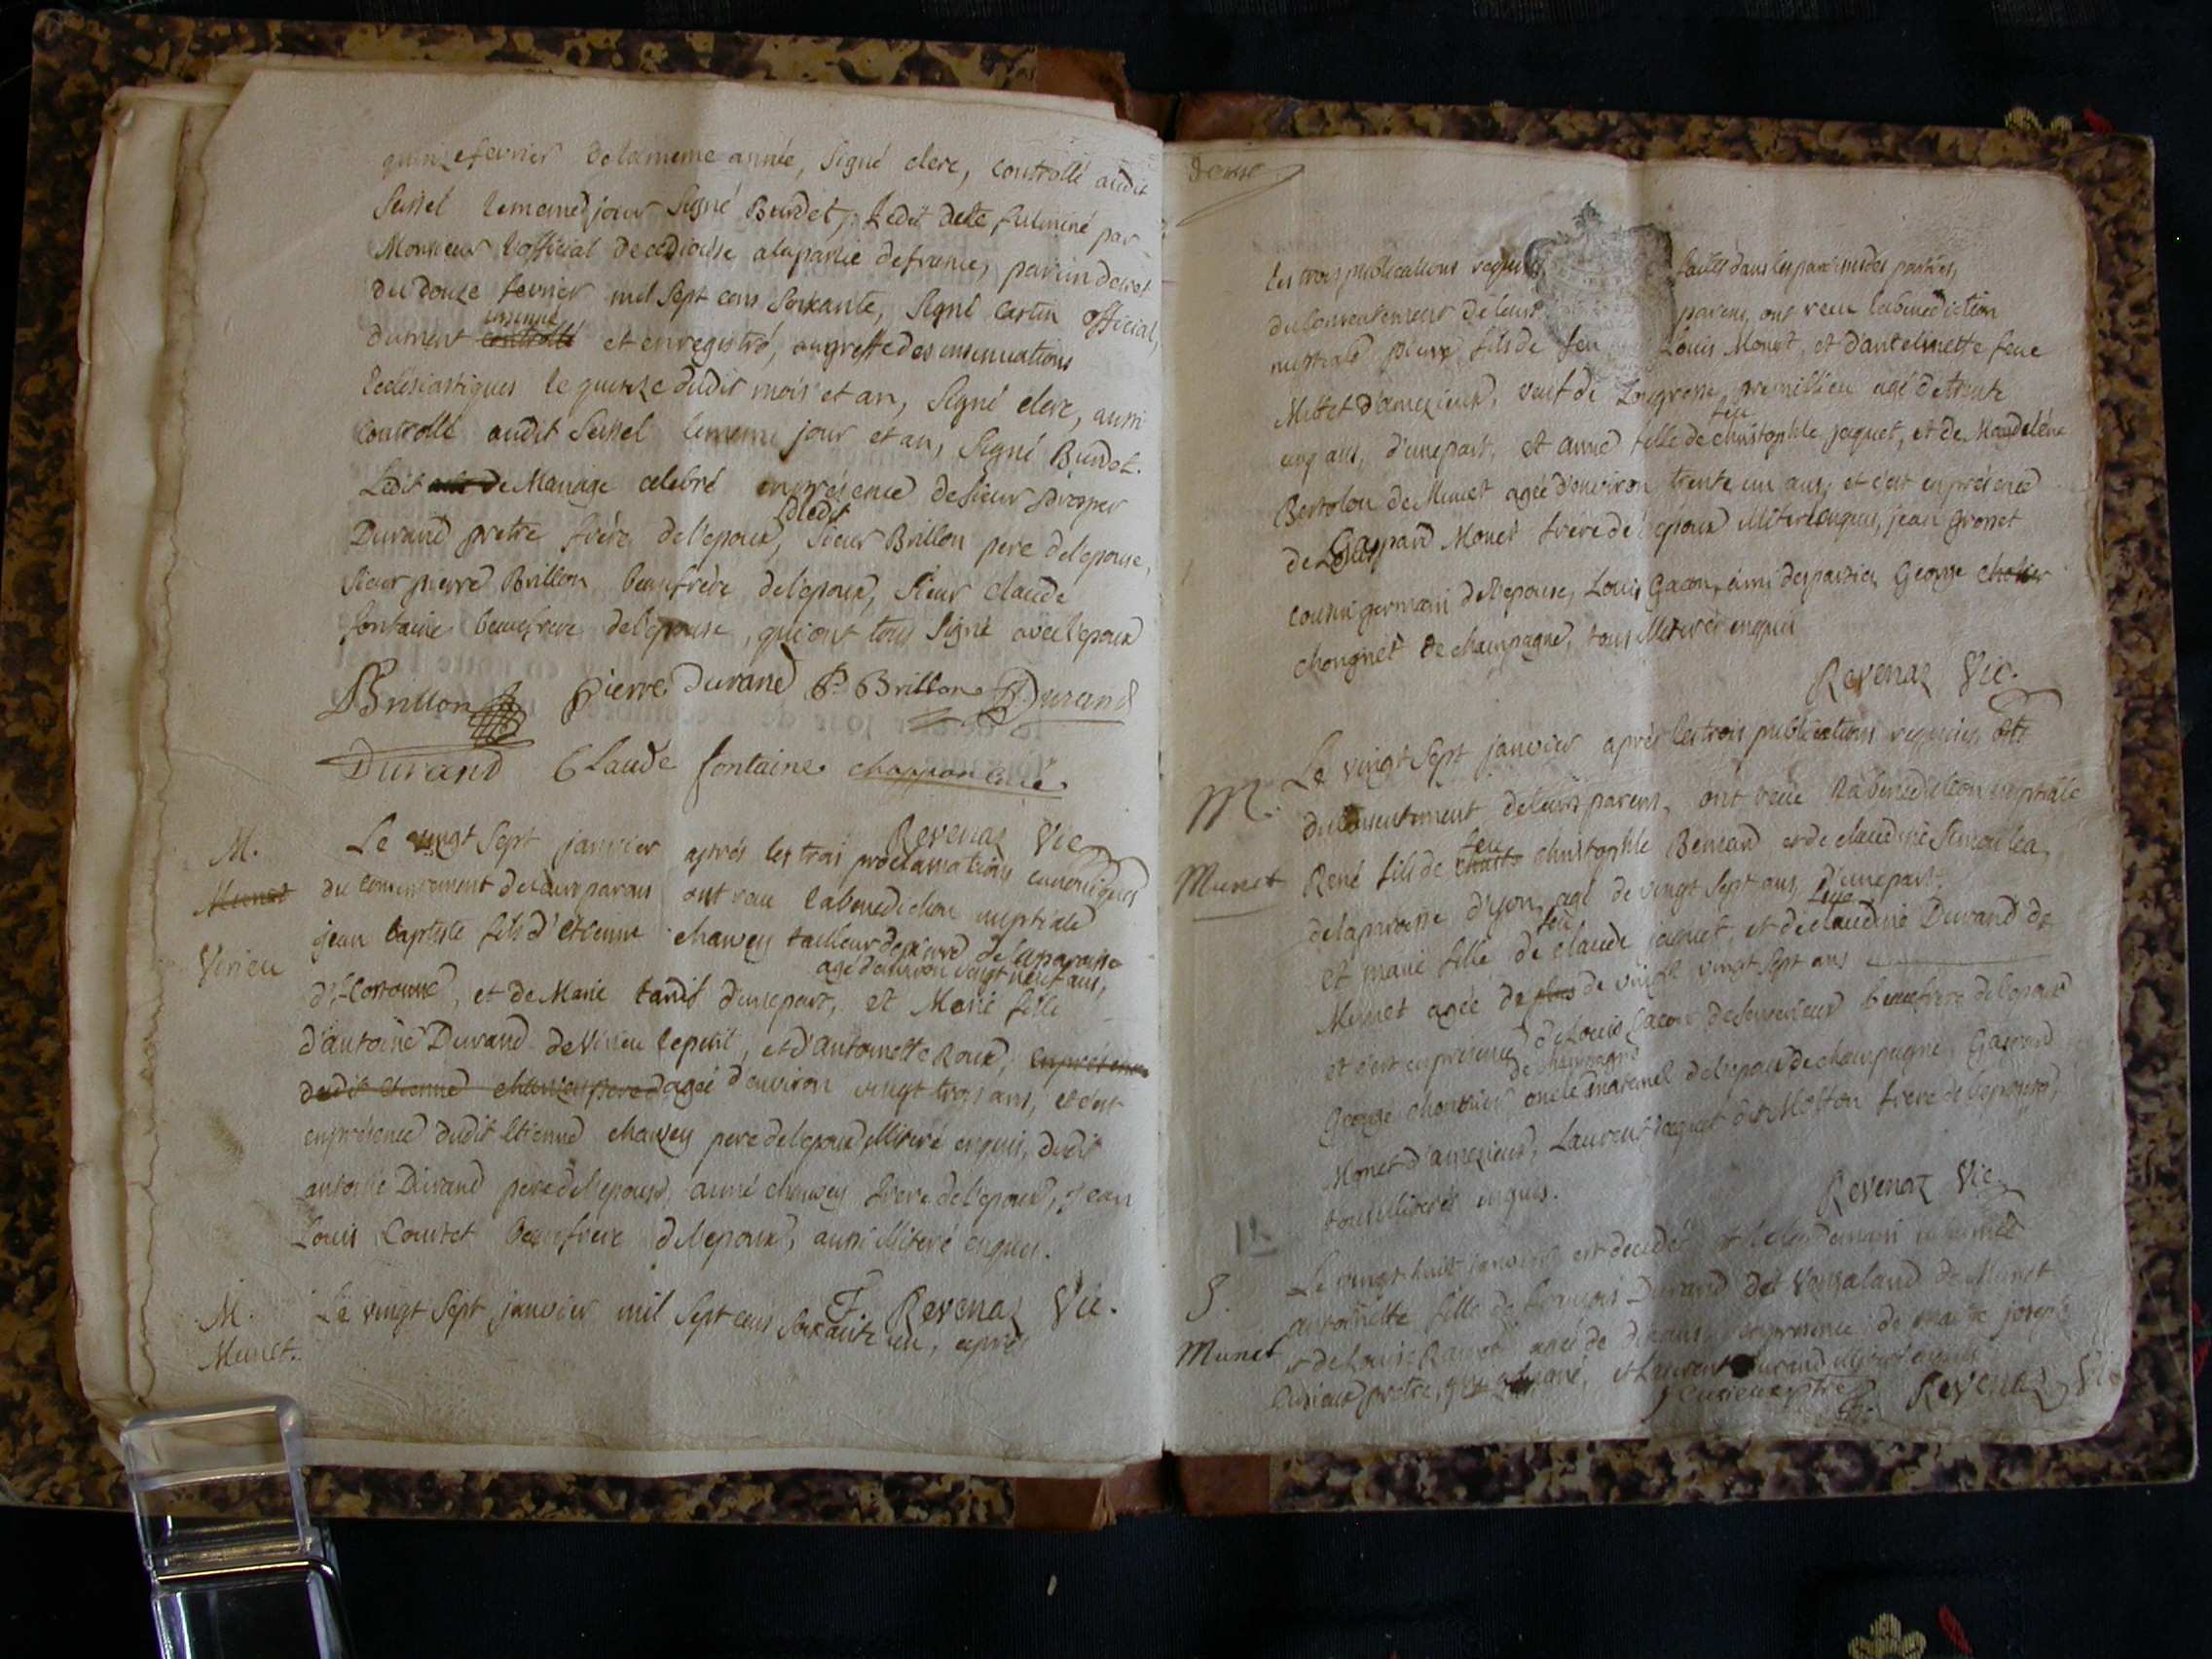 quinze fevrier de la meme année, Signé clerc, controllé audit
Seissel le meme jour Signé Burdet, Ledit fulminé par
Monsieur l'official de ce diocèse a la partie de france, par un decret
du douze fevrier mil Sept cens Soixante, Signé official,
dument insinué controllé et enregistré, au greffe des insinuations
Ecclesiastiques le quinze dudit mois et an, Signé clerc, aussi
controllé audit Seissel le meme jour et an, Signé Burdet.
Ledit de Mariage celebré en présence de Sieur prosper
Durand pretre frère de l'epoux, dudit Sieur Brillon pere de l'epouse,
Sieur pierre Brillon beaufrère de l'epoux, Sieur claude
fontaine beaufrere de l'epouse, qui ont tous Signé avec l'epoux
Brillon Pierre Durand P. Brillon Durand
Durand Claude fontaine chappon curé.
Revenaz Vic.
M.
Munet
Virieu
Le vingt Sept janvier après les trois proclamations canoniques
du consentement de leurs parens ont receu la benediction nuptiale
jean baptiste fils d'etienne chanvey tailleur de pierre de la paroisse
d' et de Marie tardif d'une part, agé d'environ vingt neuf ans, et Marie fille
d'antoine Durand de Virieu le petit, et d'antoinette Roux, en présence
dudit etienne chanvey pere agée d'environ vingt trois ans, et c'est
en présence dudit Etienne chanvey pere de l'epoux illiteré enquis, dudit
antoine Durand pere de l'epouse, aimé chanvey frere de l'epoux, jean
Louis Coutet beaufrere de l'epoux, aussi illiteré enquis.
F. Revenaz Vic.
M.
Munet.
Le vingt Sept janvier mil Sept cens Soixante un, après
douze
les trois publications requises faites dans les paroisses des parties,
du consentement de leurs parens, ont receu la benediction
nuptiale pierre fils de feu Louis Monet, et d'antelmette feue
Millet d'amezieux, veuf de agé de trente
cinq ans, d'une part, et aimée fille de feu christophle jaquet, et de Madeléne
Bertolou de Munet agée d'environ trente un ans, et c'est en présence
de Gaspard Monet frère de l'epoux illiteré enquis, jean grosset
cousin germain de l'epouse, Louis Gacon, ami des parties, George
de champagne, tous illiterés enquis
Revenaz Vic.
M.
Munet
Le vingt Sept janvier après les trois publications requises et
du consentement de leurs parens, ont receu la benediction nuptiale
René fils de feu christophle Bernard et de claudine
de la paroisse d'yon, agé de vingt Sept ans, d'une part.
et marie fille de feu claude jaquet, et de feue claudine Durand de
Munet agée de plus de vingt vingt Sept ans
et c'est en présence de Louis Gacon beaufrere de l'epoux
George oncle maternel de l'epoux de champagne, Gaspard
Monet d'amezieux, Laurent jaquet dit Molton frere de l'epouse,
tous illiterés enquis.
Revenaz Vic.
12
S.
Munet
Le vingt huit janvier est decedée et le lendemain inhumée
antoinette fille de françois Durand dit de Munet
et de agée de dix ans, en présence de maitre joseph
Cusieux pretre, et Laurent Durand illiteré enquis
J Cusieux ptre F. Revenaz Vic